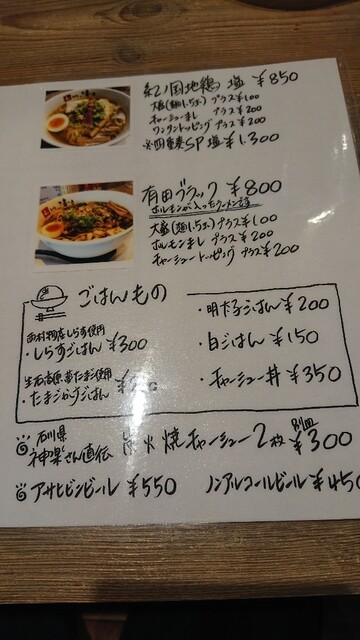 紀ノ国地鶏 塩 ¥850
大盛(麺1.5玉) プラス¥100
チャーシューまし プラス¥200
ワンタントッピング プラス¥200
SP 塩 ¥1.300
有田ブラック ¥800
ホルモンが入ったラーメンです
大盛(麺1.5玉)プラス¥100
ホルモンまし プラス¥200
チャーシュートッピング プラス¥200
ごはんもの
しらす使用
・しらすごはん ¥300
生石高原 たまご使用
・たまごかけごはん
・明太子ごはん ¥200
・白ごはん ¥150
・チャーシュー丼 ¥350
石川県
神楽さん直伝 炭火焼チャーシュー2枚 別皿 ¥300
アサヒビンビール ¥550 ノンアルコールビール ¥450